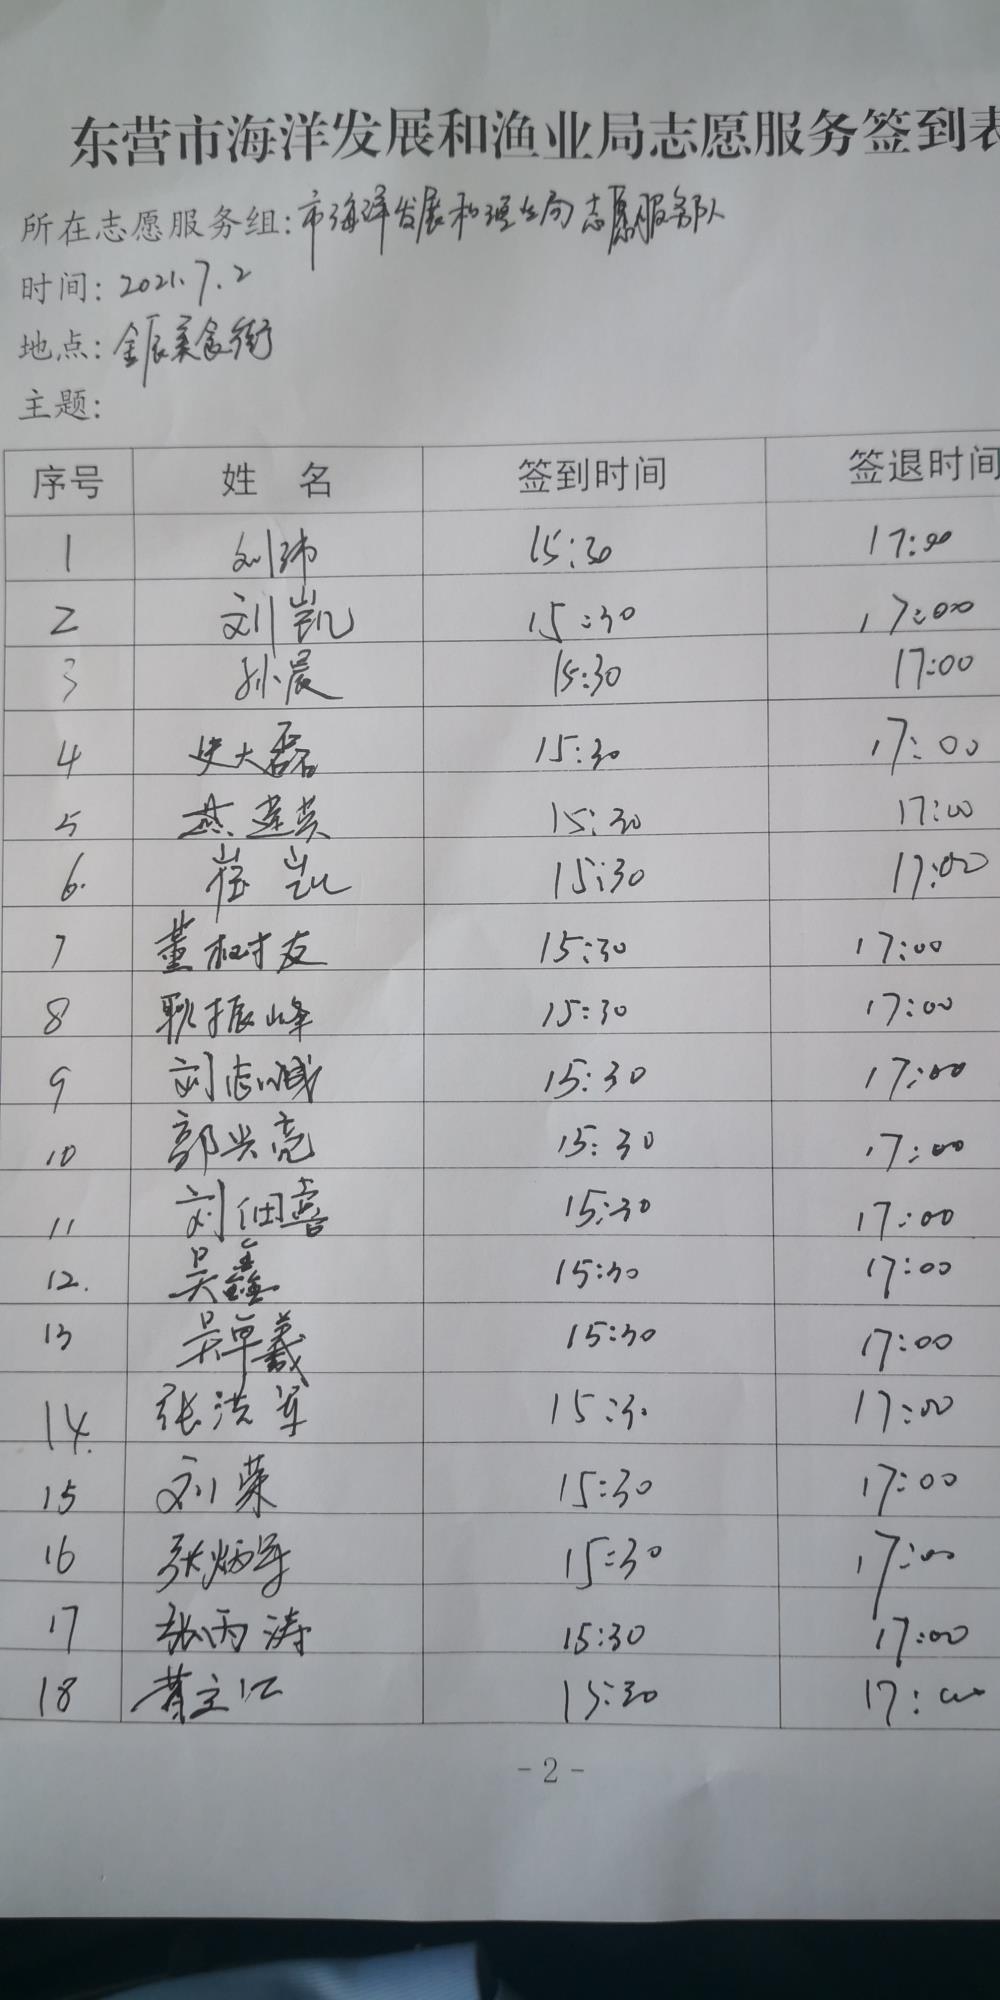 东营市海洋发展和渔业局志愿服务签到表
所在志愿服务组:市海洋发展和渔业局志愿服务队
时间: 2021.7.2
地点: 金辰美食街
主题:
序号 姓 名 签到时间 签退时间
1 刘沛 15:30 17:00
2 刘凯 15:30 17:00
3 孙晨 15:30 17:00
4 史大磊 15:30 17:00
5 燕建英 15:30 17:00
6. 崔凯 15:30 17:00
7 董树友 15:30 17:00
8 耿振峰 15:30 17:00
9 刘志诚 15:30 17:00
10 郭兴亮 15:30 17:00
11 刘佃喜 15:30 17:00
12. 吴鑫 15:30 17:00
13 吴卓羲 15:30 17:00
14. 张洪军 15:30 17:00
15 刘荣 15:30 17:00
16 张炳军 15:30 17:00
17 张丙涛 15:30 17:00
18 立江 15:30 17:00
- 2 -